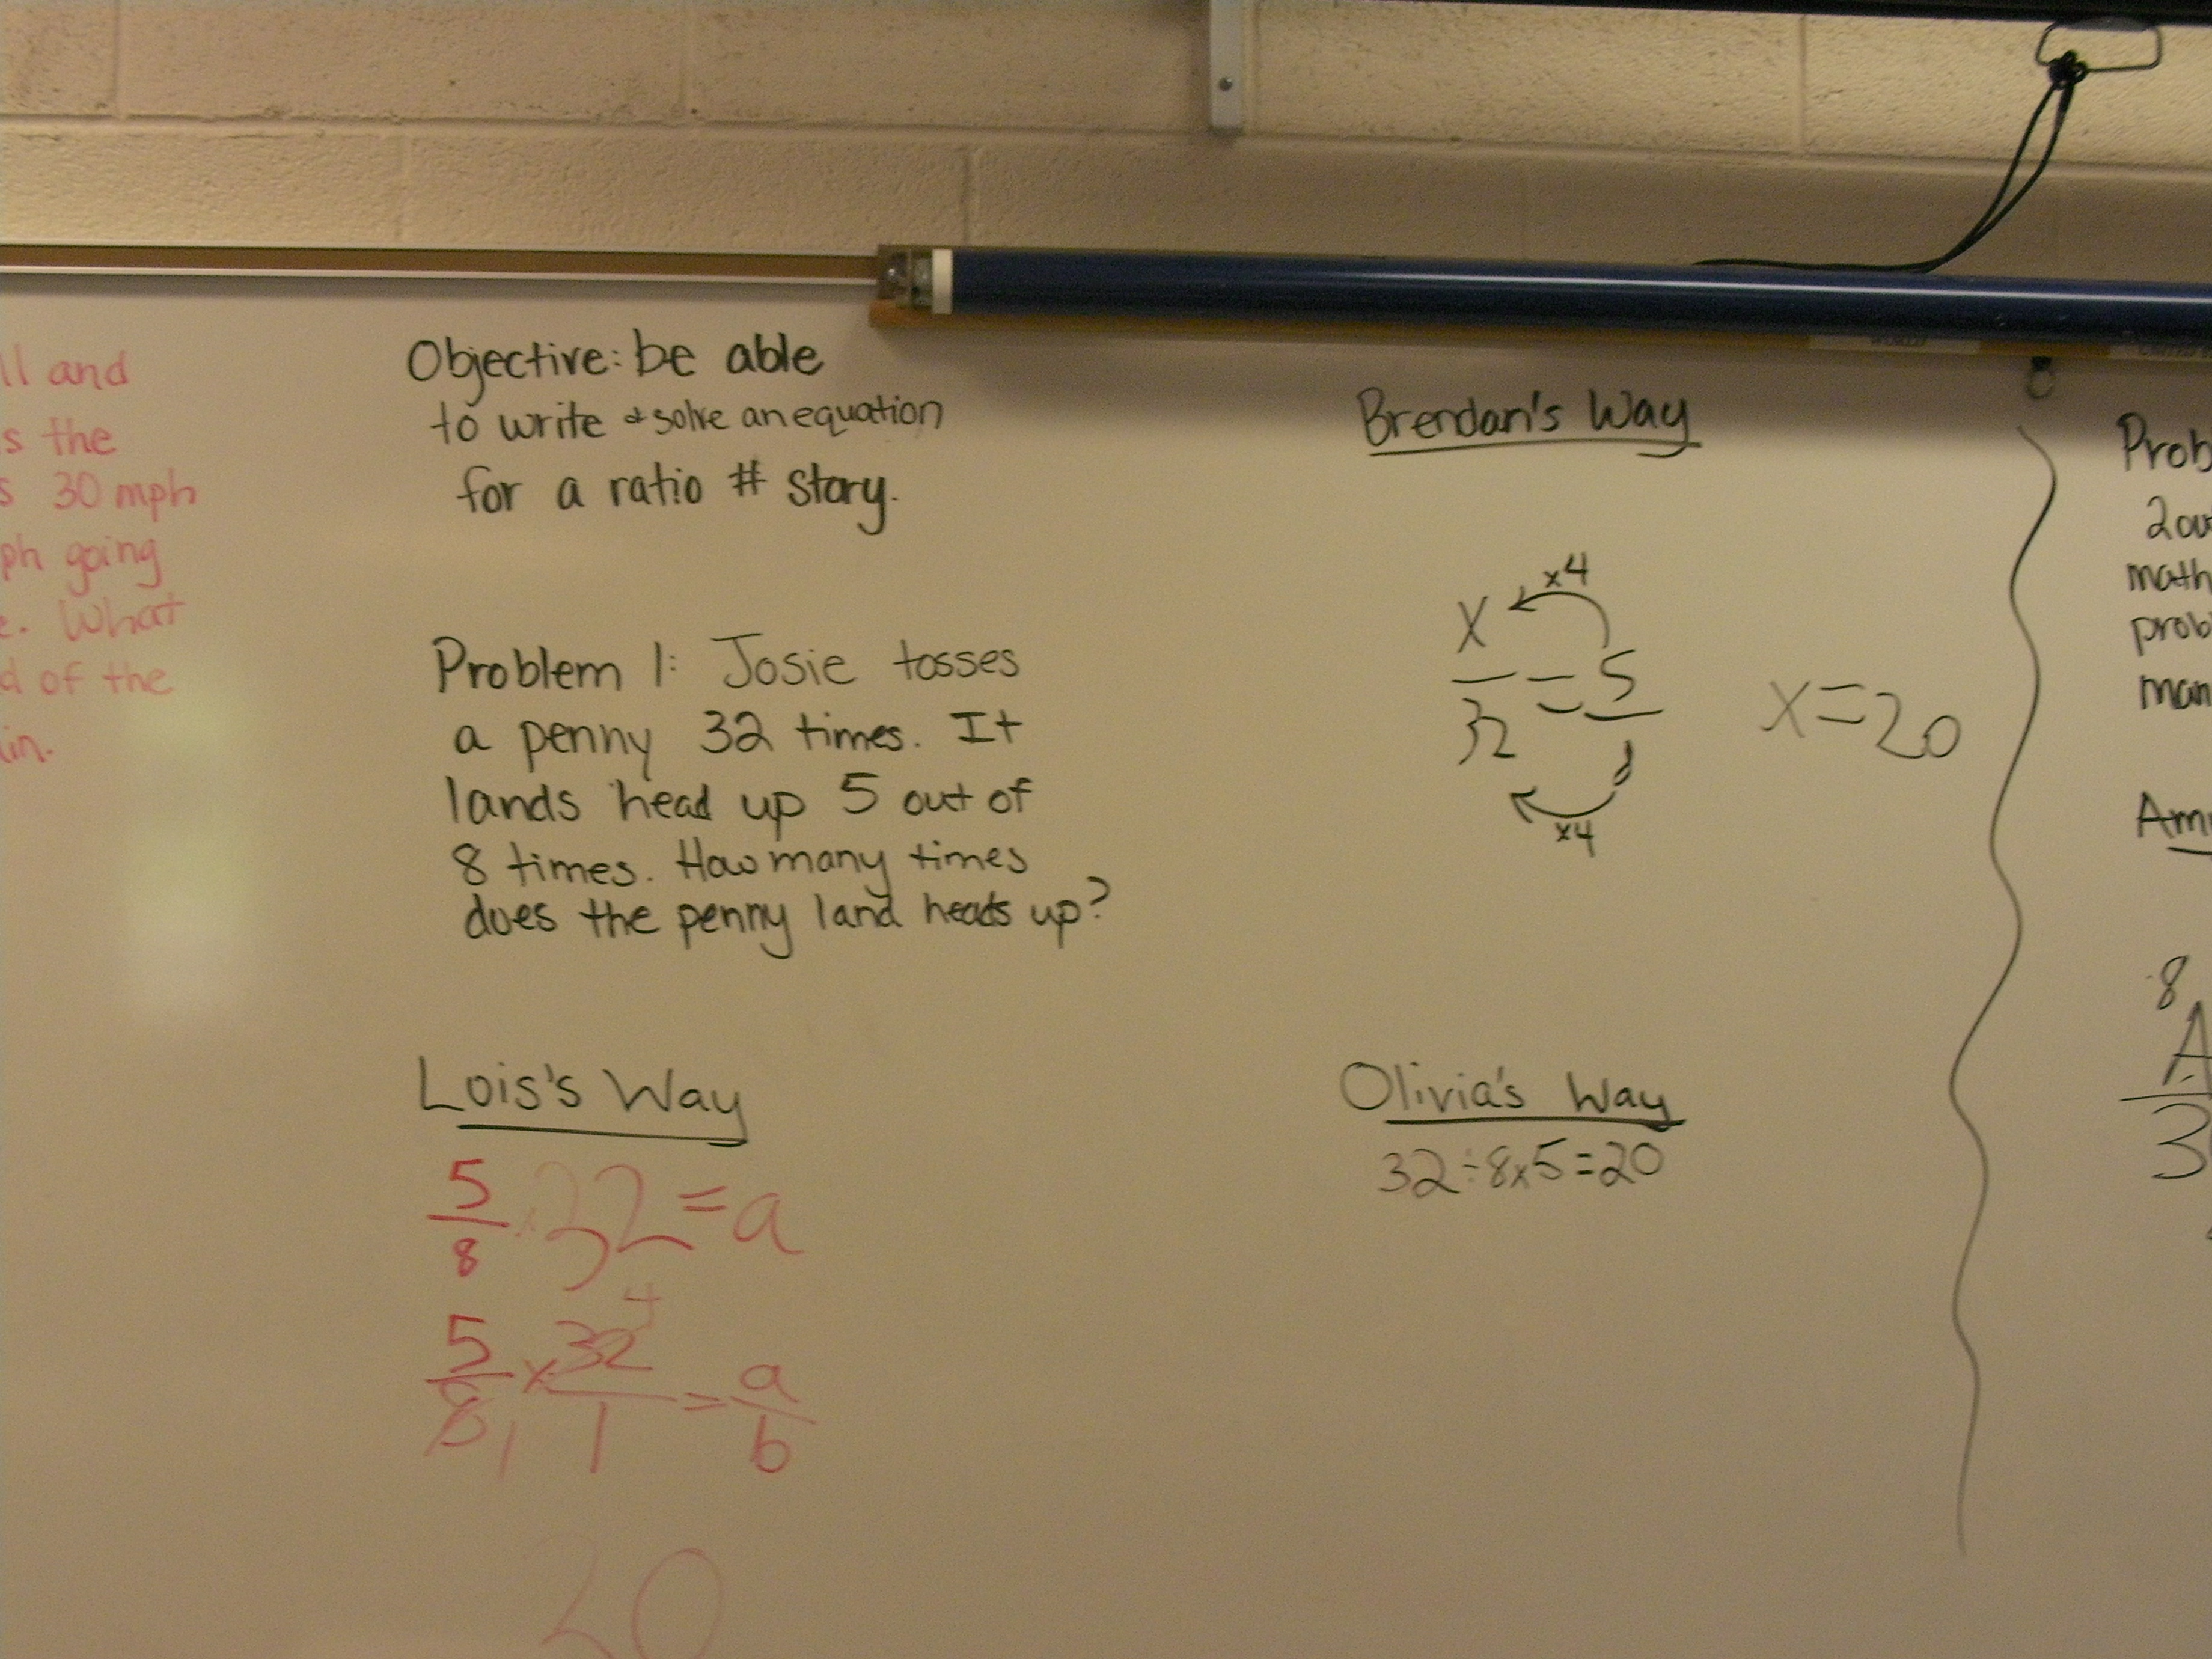 ll and
s the
s 30 mph
ph going
e. What
d of the
in.
Objective: be able
to write & solve an equation
for a ratio # story.
Problem 1: Josie tosses
a penny 32 times. It
lands head up 5 out of
8 times. How many times
does the penny land heads up?
Lois's Way
5/8 · 32 = a
4
5/8 x 32/1 = a/b
1
20
Brendan's Way
x4
X/32 = 5/8
x4
X=20
Olivia's Way
32÷8x5=20
Prob
2 out
math
prob
man
Am
8
A
3